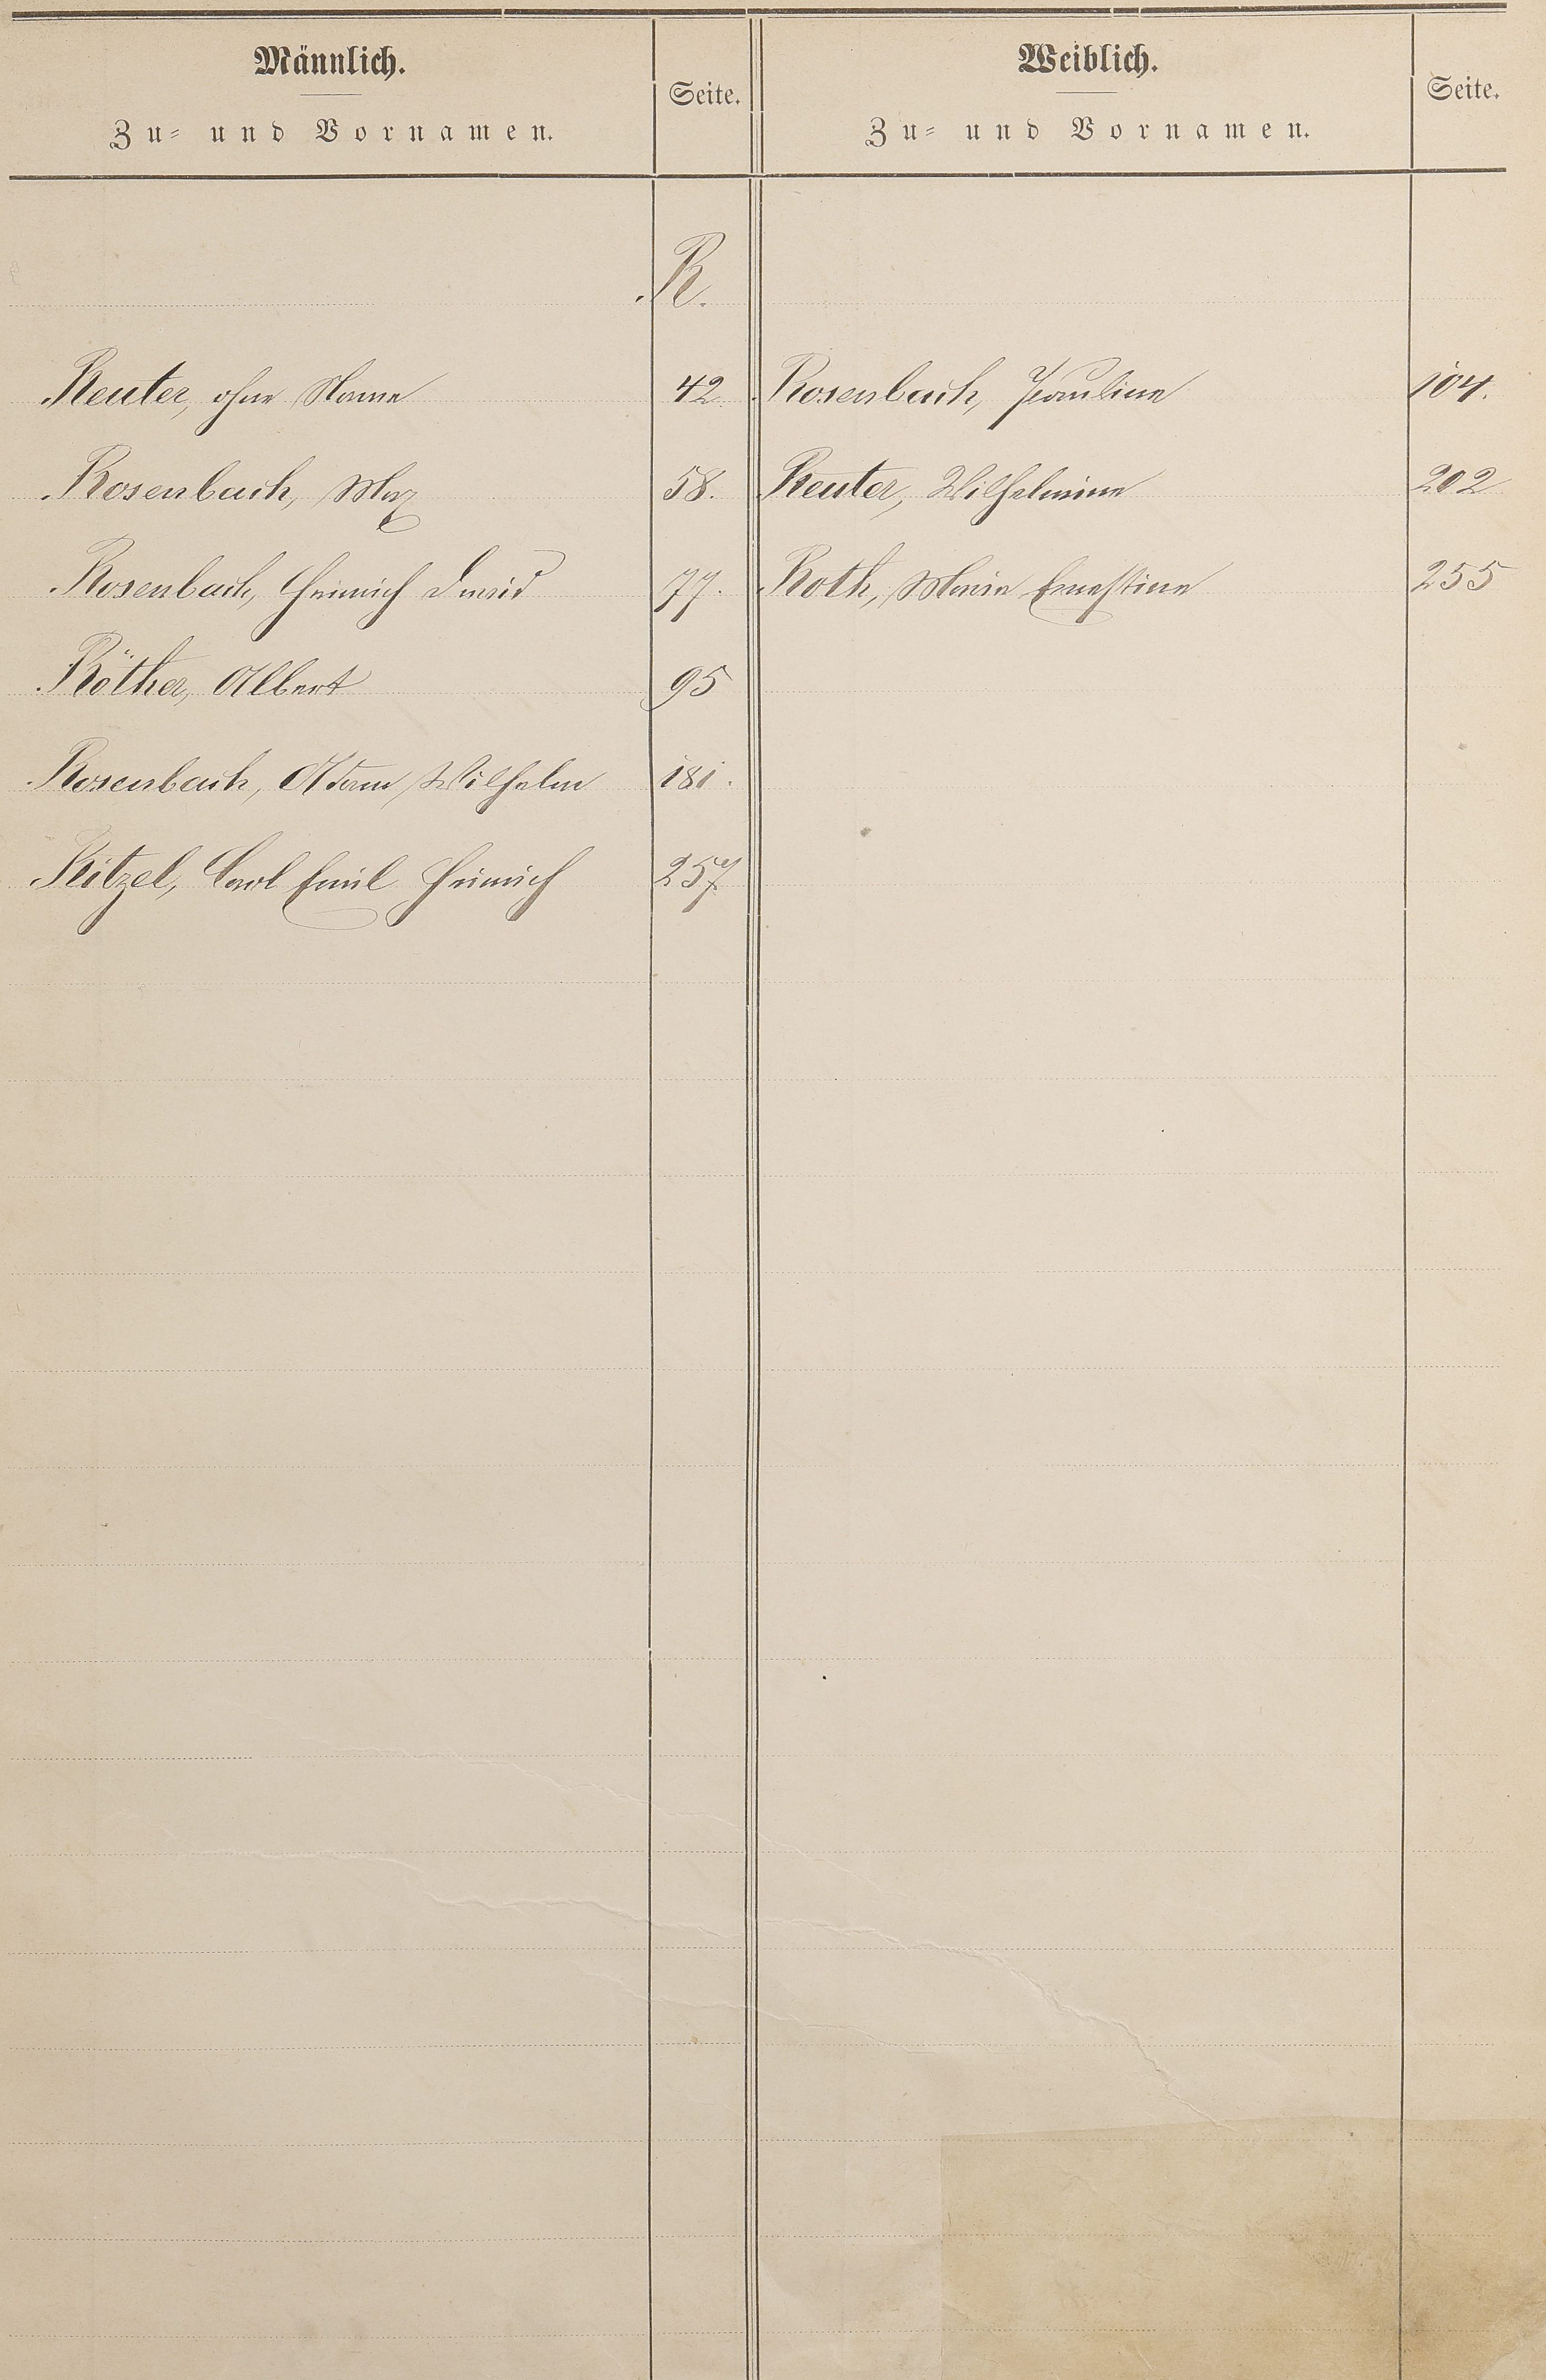 Männlich.
Zu- und Vornamen.
Seite.
Weiblich.
Zu- und Vornamen.
Seite.
R.
Reuter, ohne Name 42.
Rosenbach, Pauline 104.
Rosenbach, Max 58.
Reuter, Wilhelmine 202
Rosenbach, Heinrich David 77.
Roth, Maria Ernestine 255
Röther, Albert 95
Rosenbach, Adam Wilhelm 181.
Ritzel, Carl Emil Heinrich 257